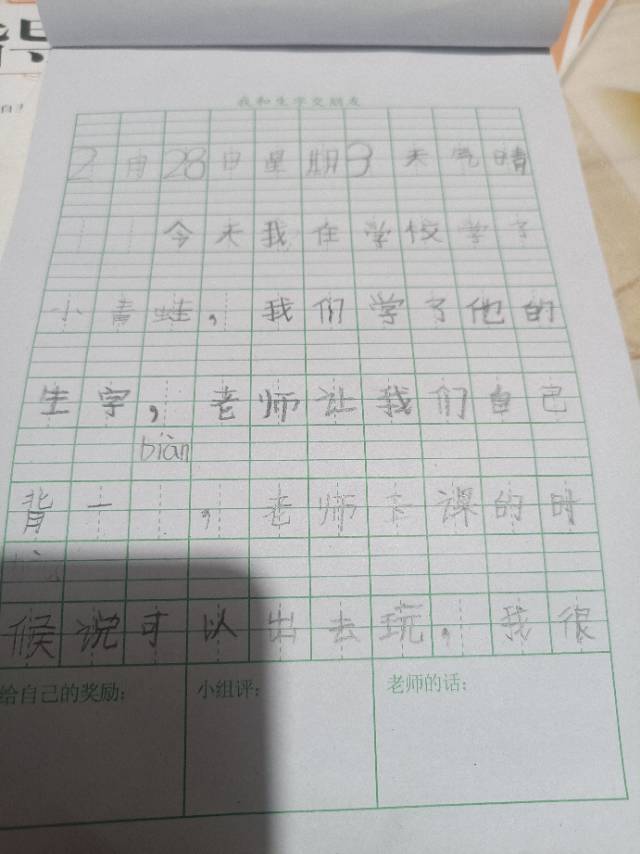 我和生字交朋友
2月28日星期3天气晴
今天我在学校学了
小青蛙，我们学了他的
生字，老师让我们自己
biàn
背一，老师下课的时
候说可以出去玩，我很
给自己的奖励：
小组评：
老师的话：